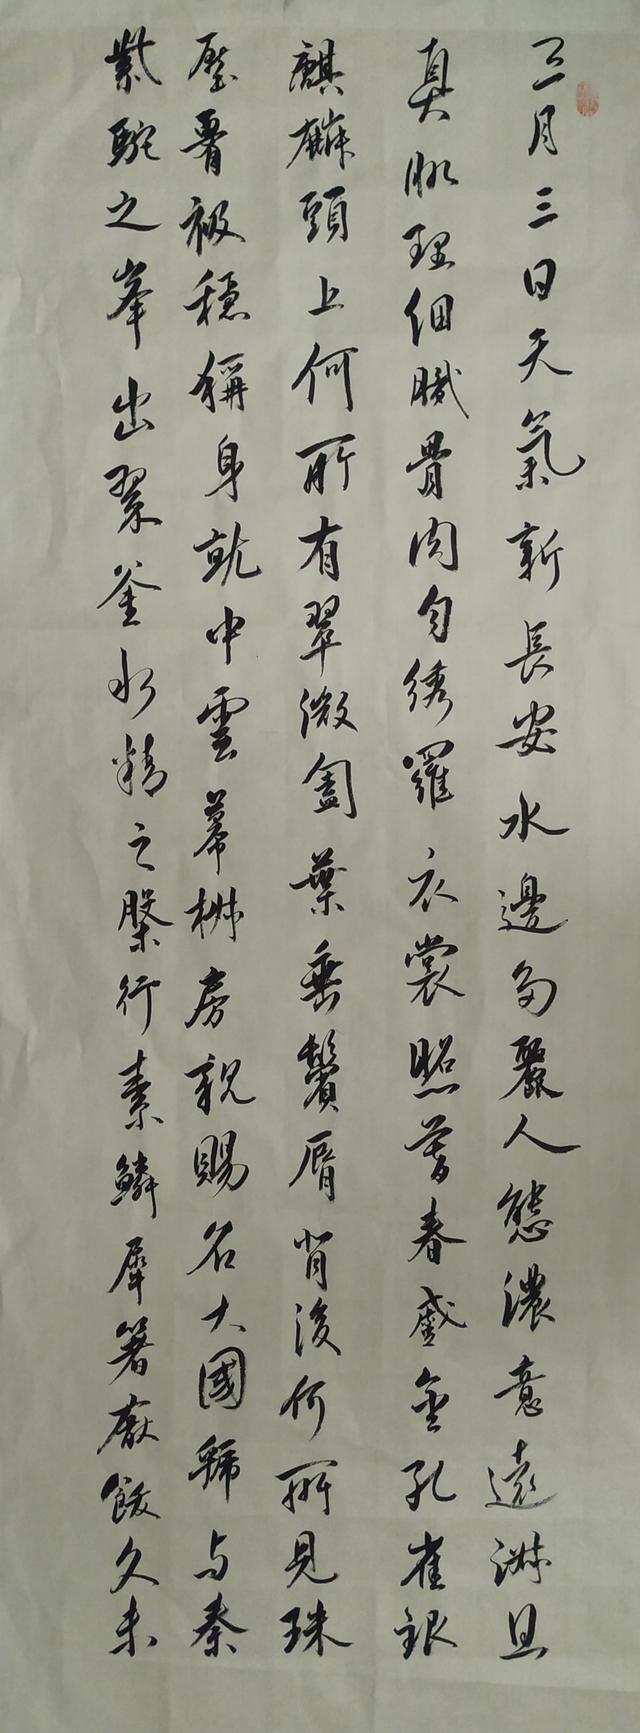 三月三日天氣新長安水邊多麗人態濃意遠淋且
真肌理细膩骨肉匀绣羅衣裳照暮春蹙金孔雀銀
麒麟頭上何所有翠微㔩葉垂鬢脣背後何所見珠
壓署被穏稱身就中雲幕椒房親賜名大國虢与秦
紫駝之峯出翠釜水精之槃行素鱗犀箸厭飫久未